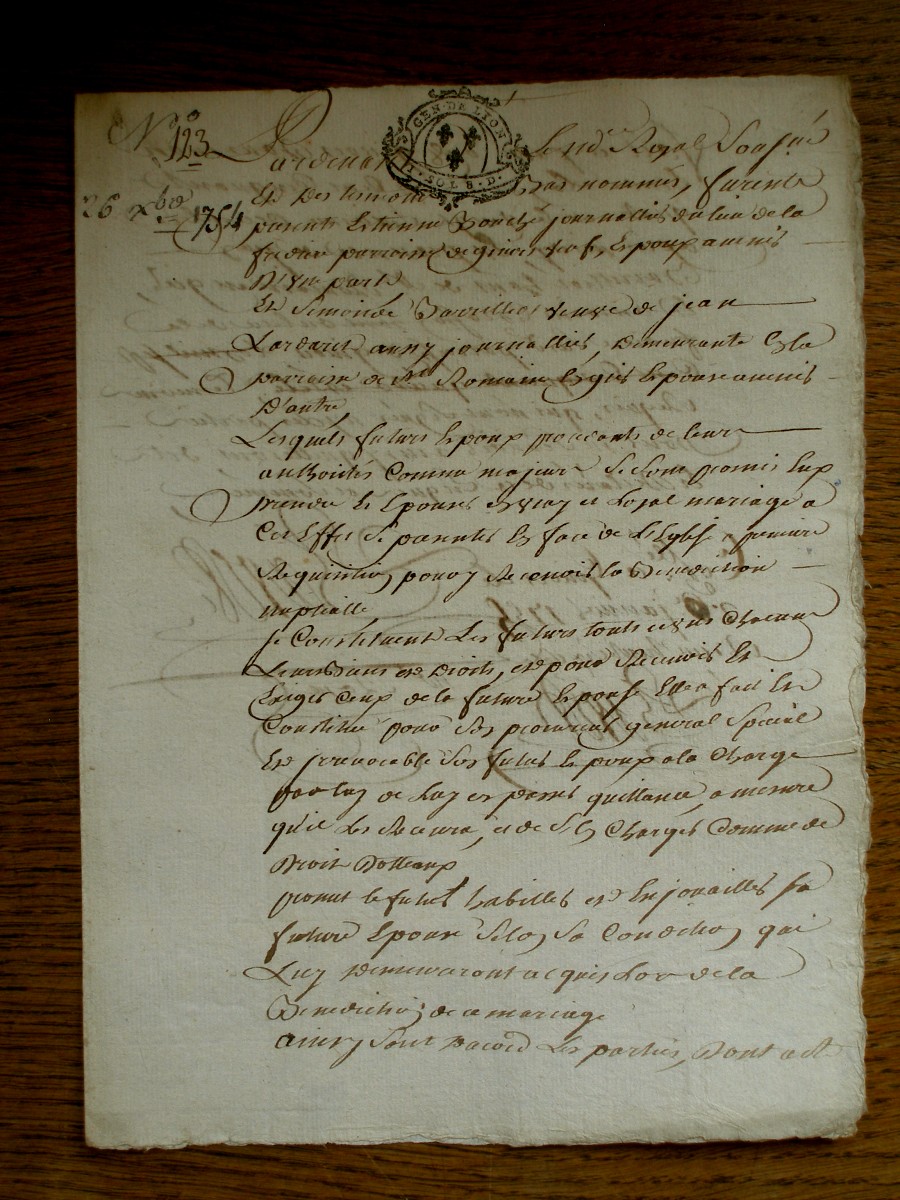 N° 123
26 xbre 1754
GEN. DE LYON
1. SOL 8. D.
Pardevant le no.re Royal Sousné
Et Des temoins bas nommés, furent
presents Estienne journallier du lieu de la
parroisse de Epoux a venir
D'une part
Et Simonde veuve de jean
aussy journallier, Demeurante En la
parroisse de St. Romain Epouse a venir
D'autre,
Lesquels futurs Epoux procedants de leurs
authorités Comme majeurs Se sont promis Eux
prendre Et Epouser En vray et Loyal mariage a
Cet Effet Se presenter En face de L'Eglise a premiere
Requisition pour y Recevoir la Benediction
nuptialle
Se Constituent Les futurs touts et uns Chacuns
Leurs biens et Droits, et pour Recevoir Et
Exiger Ceux de la future Epouse Elle a fait Et
Constitué pour Son procureur general Special
Et irrevocable Son futur Epoux a la Charge
par luy de passer quittance, a mesure
qu'il Les Recevra, et de S'En Charger Comme de
Droit Dotteaux
promet le futur habiller et Enjoailler Sa
future Epouse Selon Sa Condition qui
Luy Demeureront acquis Lors de la
Benediction de ce mariage
ainsy Sont D'acord Les parties, Dont acte